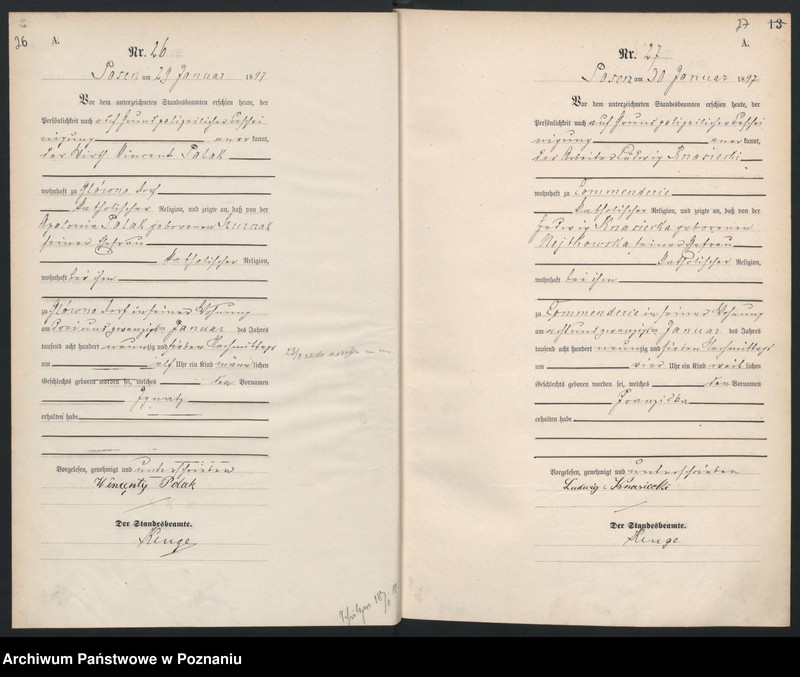 26
A.
Nr. 26
Posen am 29 Januar 1897
Vor dem unterzeichneten Standesbeamten erschien heute, der
Persönlichkeit nach auf Grund polizeilicher Beschei
nigung anerkannt,
der Wirth Vincent Polak
wohnhaft zu Glowno Dorf
katholischer Religion, und zeigte an, daß von der
Apolonia Polak geborenen
seiner Ehefrau
katholischer Religion,
wohnhaft bei ihm
zu Glowno Dorf in seiner Wohnung
am drei und zwanzigsten Januar des Jahres
tausend acht hundert neunzig und sieben Nachmittags
um elf Uhr ein Kind männlichen
Geschlechts geboren worden sei, welches den Vornamen
Ignatz
erhalten habe
Vorgelesen, genehmigt und unterschrieben
Wincenty Polak
Der Standesbeamte.
27 13
A.
Nr. 27
Posen am 30 Januar 1897
Vor dem unterzeichneten Standesbeamten erschien heute, der
Persönlichkeit nach auf Grund polizeilicher Beschei
nigung anerkannt,
der Arbeiter Ludwig Knasiecki
wohnhaft zu Commenderie
katholischer Religion, und zeigte an, daß von der
Hedwig Knasiecka geborenen
Wojtkowska seiner Ehefrau
katholischer Religion,
wohnhaft bei ihm
zu Commenderie in seiner Wohnung
am acht und zwanzigsten Januar des Jahres
tausend acht hundert neunzig und sieben Nachmittags
um vier Uhr ein Kind weiblichen
Geschlechts geboren worden sei, welches den Vornamen
Franziska
erhalten habe
Vorgelesen, genehmigt und unterschrieben
Ludwig Knasiecki
Der Standesbeamte.
Archiwum Państwowe w Poznaniu